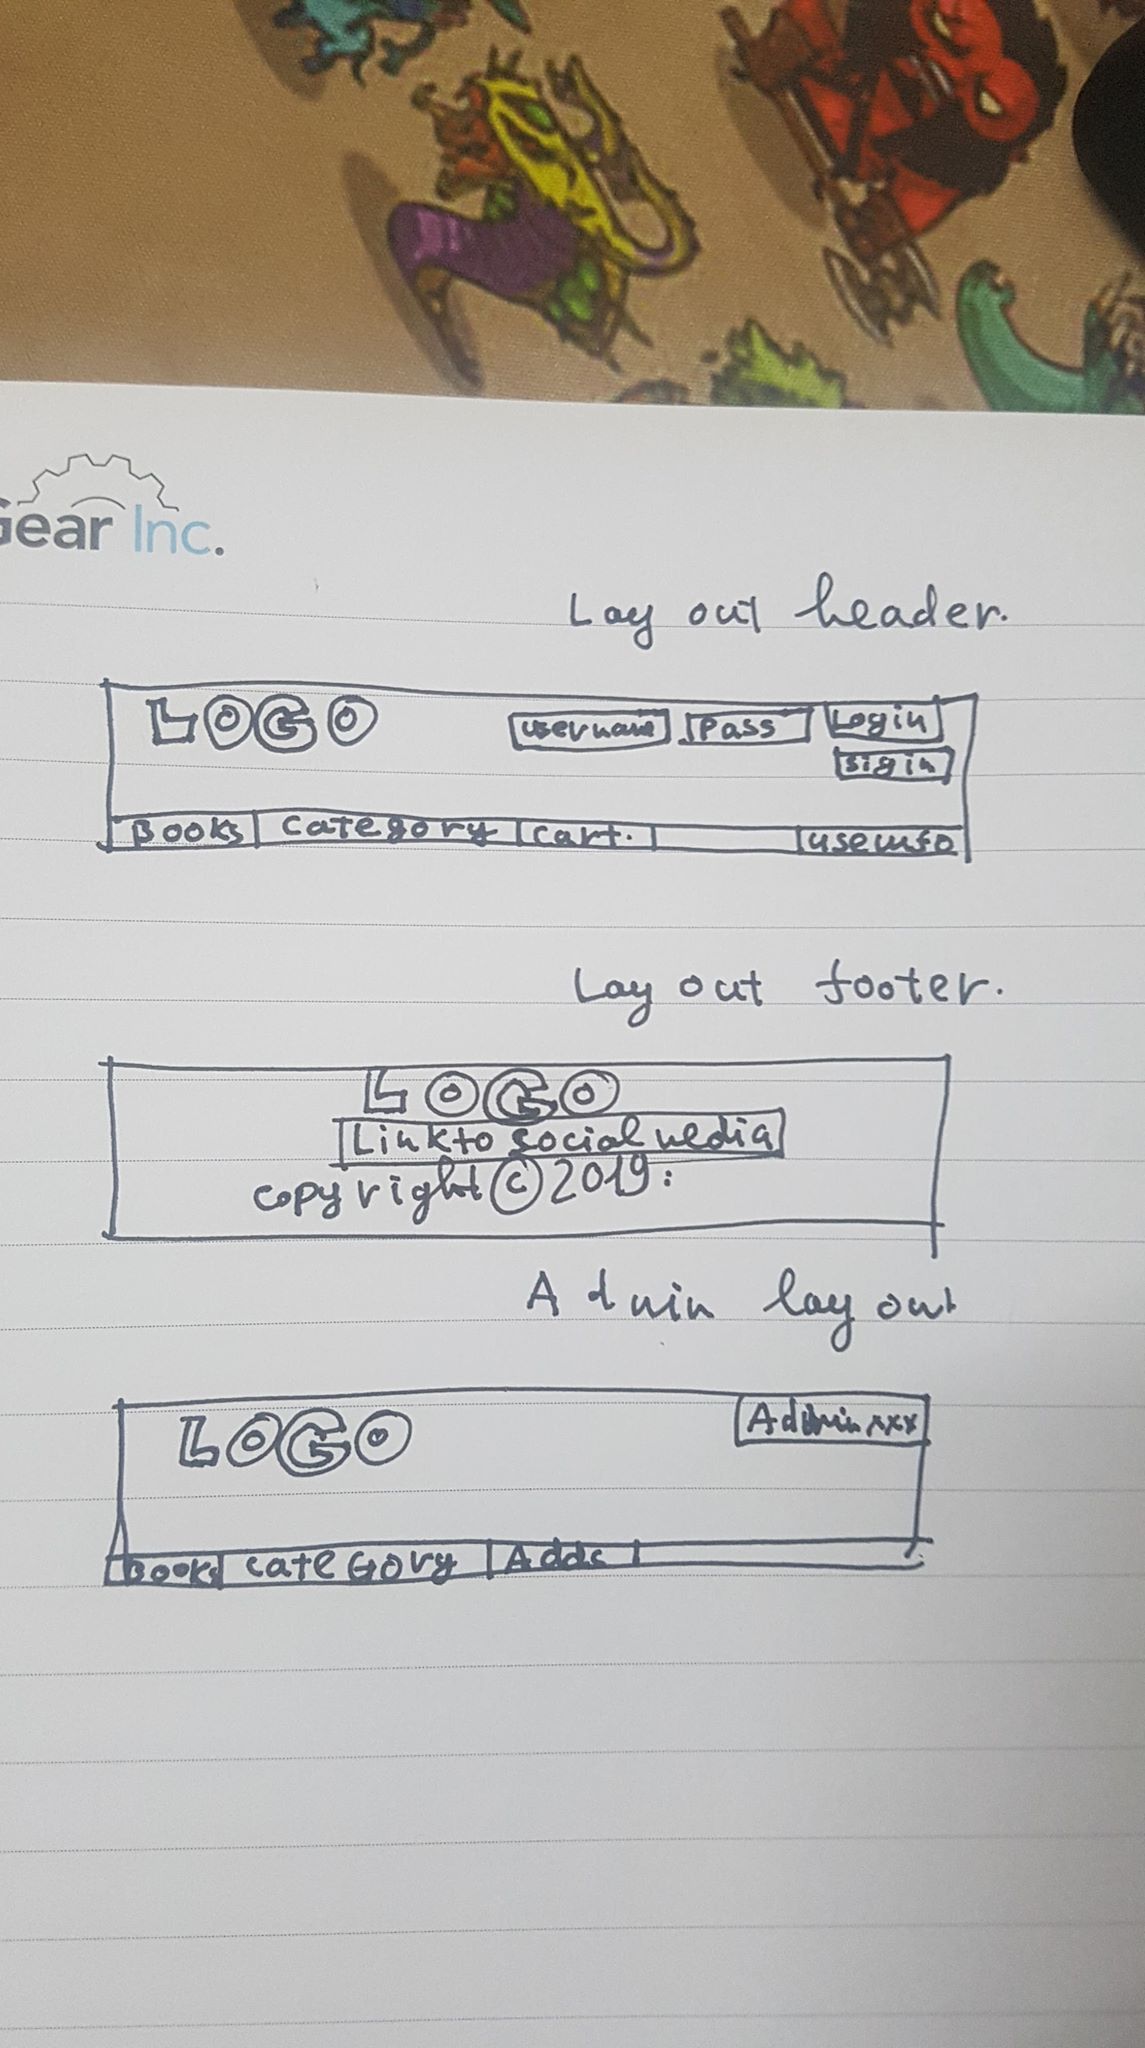 Gear Inc.
Lay out header.
LOGO username Pass Login
sigin
Books Category Cart. useinfo
Lay out footer.
LOGO
Link to social media
copyright © 2019.
Admin lay out
LOGO Admin xxx
Books cateGory Adds